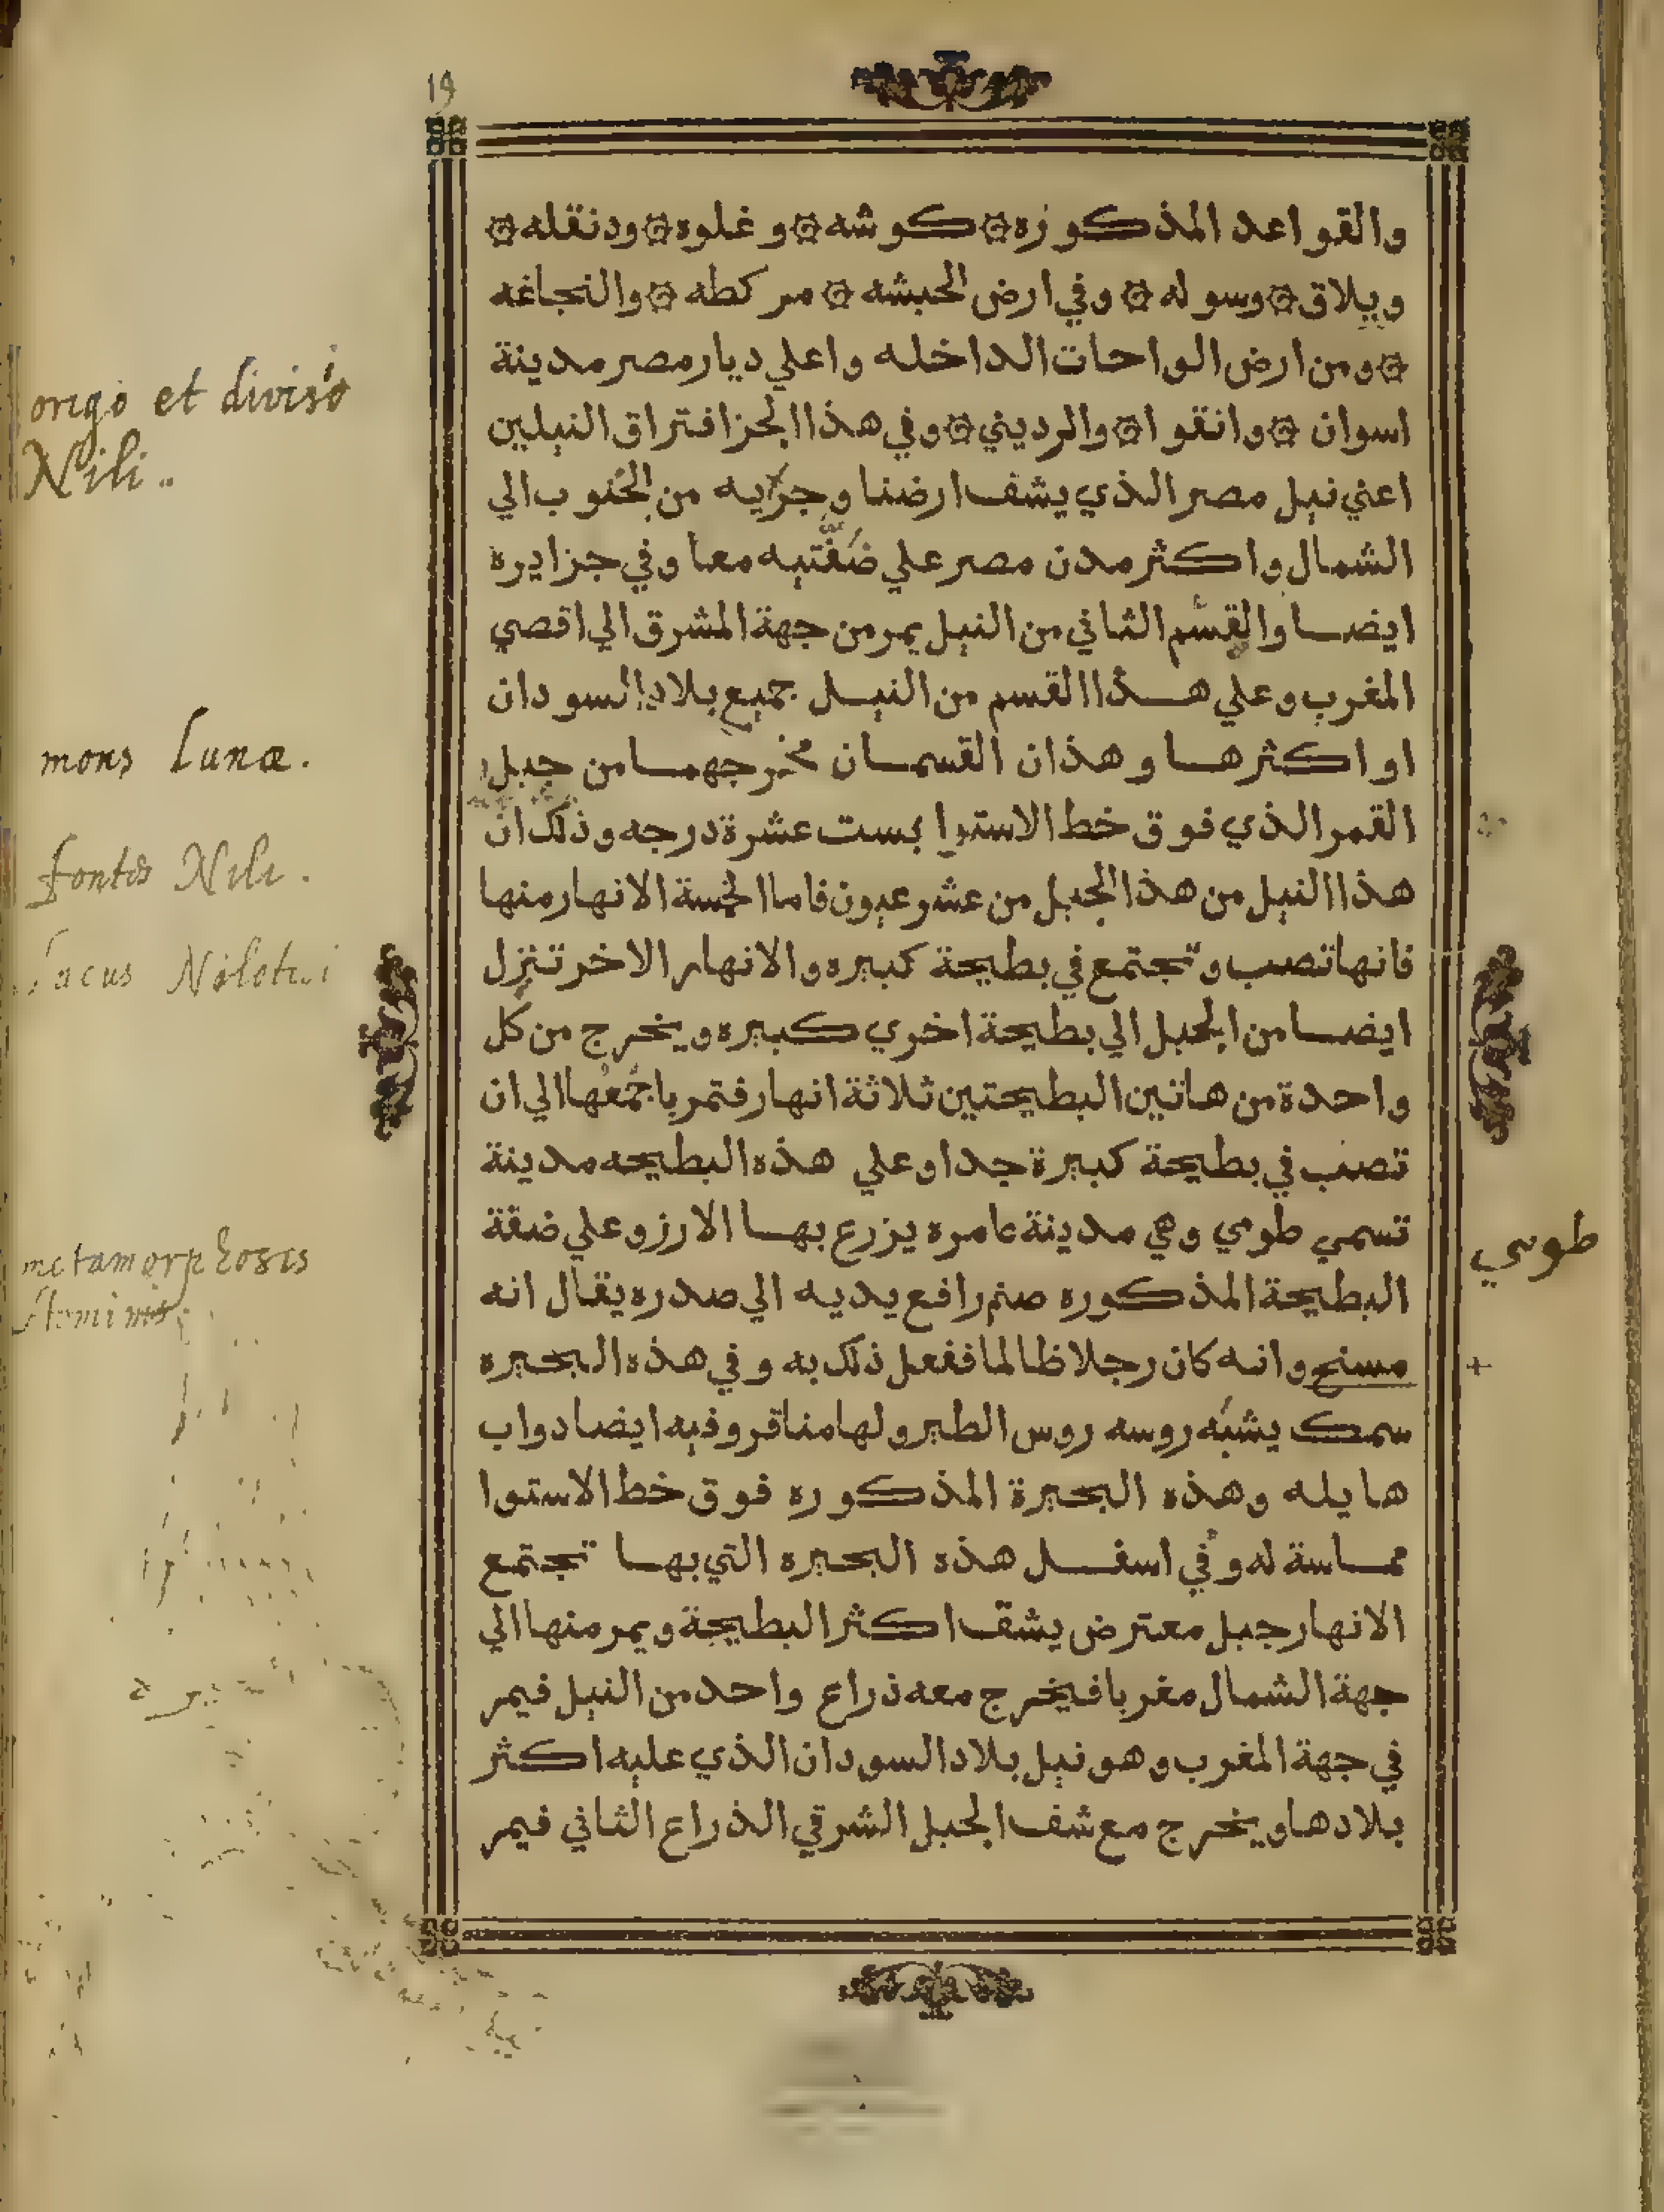 19
والقواعد المذكورة ۞ كوشه ۞ وغلوه ۞ ودنقله ۞
ويلاق ۞ وسوله ۞ وفي ارض الحبشه ۞ مركطه ۞ والنجاغه
۞ ومن ارض الواحات الداخله واعلي ديار مصر مدينة
اسوان ۞ وانقوا ۞ والرديني ۞ وفي هذا الجزا فتراق النيلين
اعني نيل مصر الذي يشف ارضنا وجرايه من الجنوب الي
الشمال واكثر مدن مصر علي ضفتيه معا وفي جزايره
ايضا والقسم الثاني من النيل يمر من جهة المشرق الي اقصي
المغرب وعلي هذا القسم من النيل جميع بلاد السودان
او اكثرها وهذان القسمان مخرجهما من جبل
القمر الذي فوق خط الاستوا بست عشرة درجه وذلك ان
هذا النيل من هذا الجبل من عشر عيون فاما الخمسة الانهار منها
فانها تصب وتجتمع في بطيحة كبيره والانهار الاخر تنزل
ايضا من الجبل الي بطيحة اخري كبيره ويخرج من كل
واحدة من هاتين البطيحتين ثلاثة انهار فتمر باجمعها الي ان
تصب في بطيحة كبيرة جدا وعلي هذه البطيحه مدينة
تسمي طومي وهي مدينة عامره يزرع بها الارز وعلي ضفة
البطيحة المذكوره صنم رافع يديه الي صدره يقال انه
مسنح وانه كان رجلا ظالما ففعل ذلك به وفي هذه البحيره
سمك يشبه روسه روس الطير ولها مناقر وفيه ايضا دواب
هايله وهذه البحيرة المذكوره فوق خط الاستوا
مماسة له وفي اسفل هذه البحيره التي بها تجتمع
الانهار جبل معترض يشق اكثر البطيحة ويمر منها الي
جهة الشمال مغربا فيخرج معه ذراع واحد من النيل فيمر
في جهة المغرب وهو نيل بلاد السودان الذي عليه اكثر
بلادها ويخرج مع شف الجبل الشرقي الذراع الثاني فيمر
origo et divisio
Nili..
mons Lunæ.
fontes Nili.
lacus
metamorphosis
طوسي
+